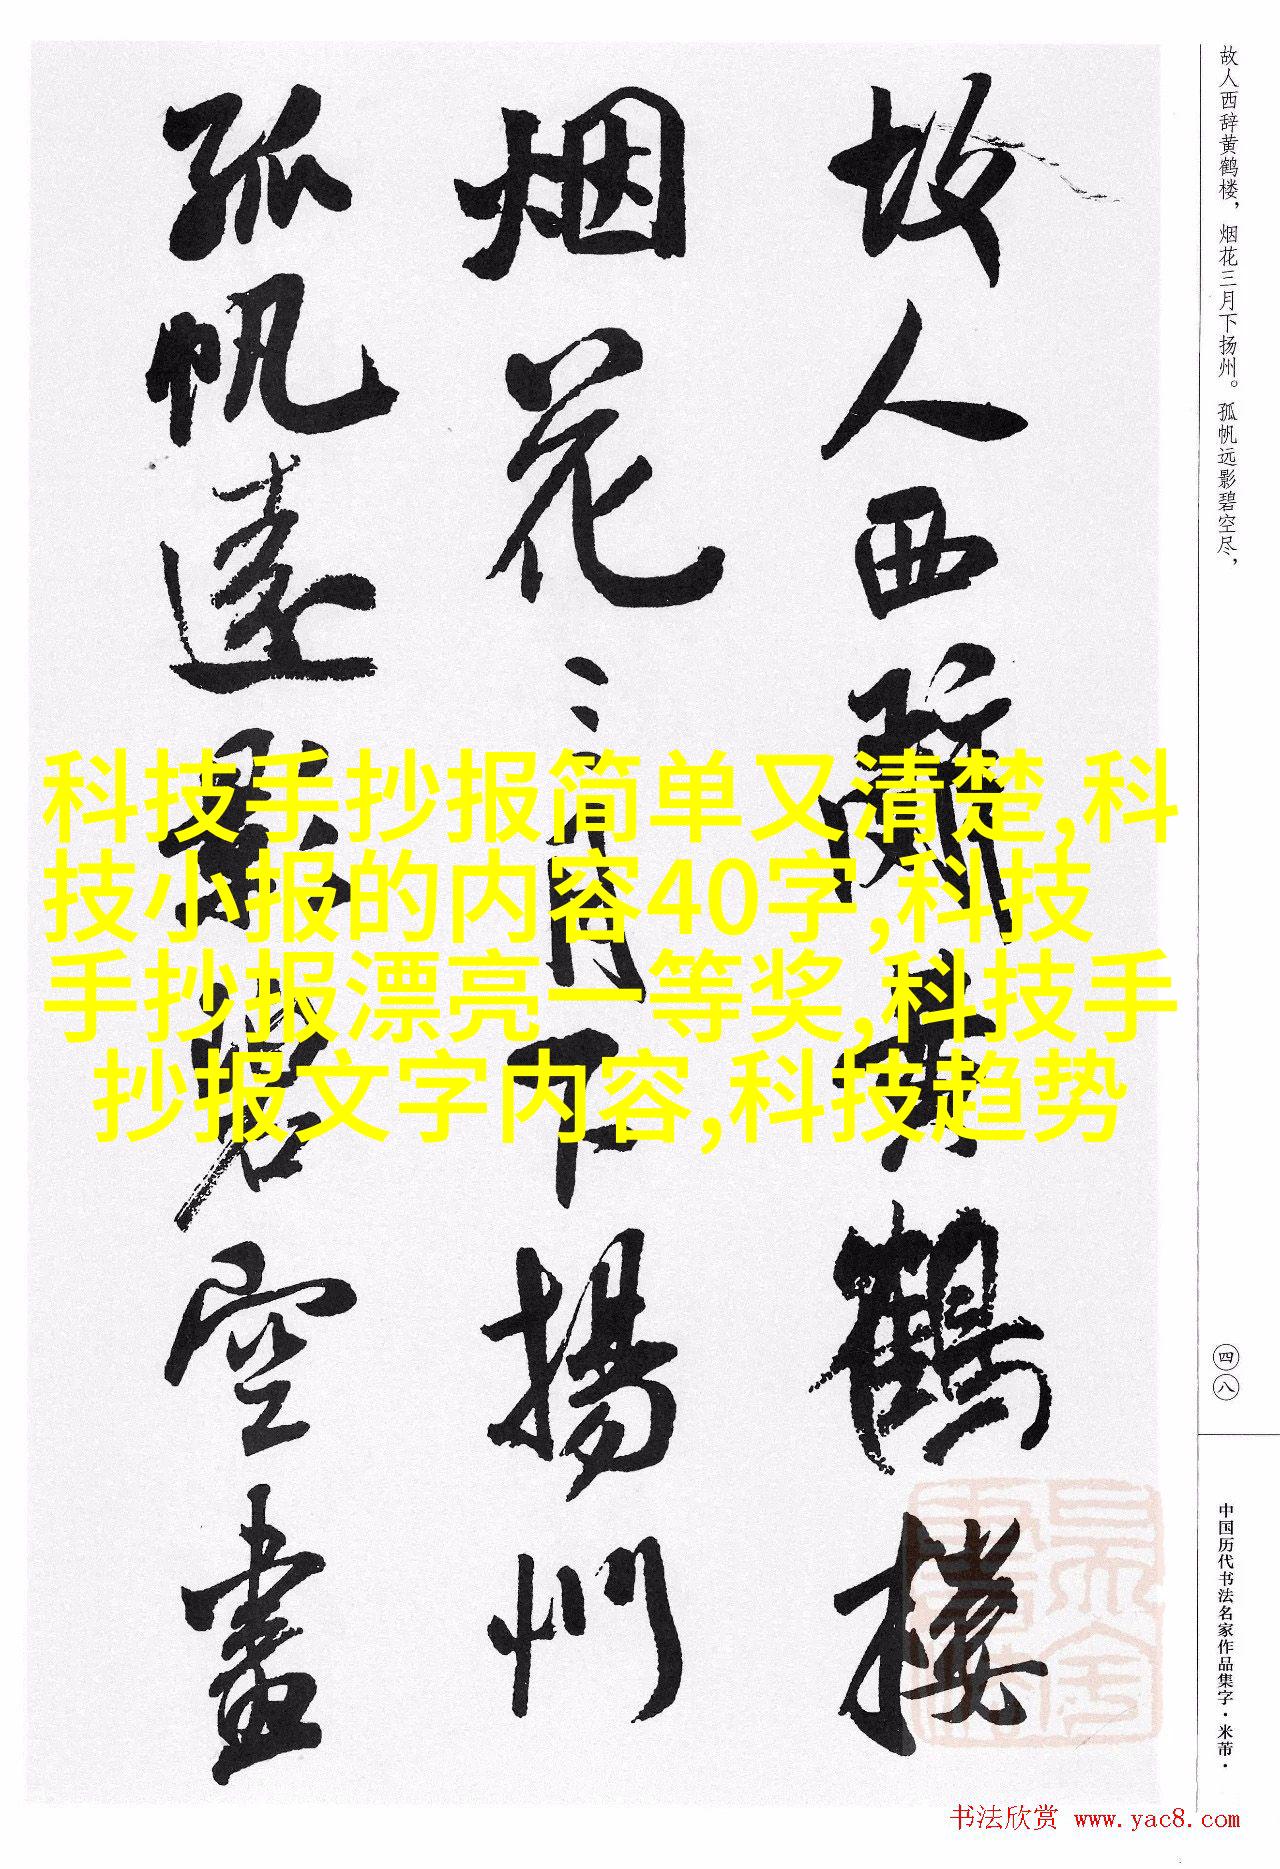 故人西辞黄鹤楼，烟花三月下扬州。孤帆远影碧空尽，
故人西辭黄鶴楼
烟花三月下揚州
孤帆遠影碧空盡
科技手抄报简单又清楚,科
技小报的内容40字,科技
手抄报漂亮一等奖,科技手
抄报文字内容,科技趋势
四八
中国历代书法名家作品集字·米芾·
书法欣赏 www.yac8.com